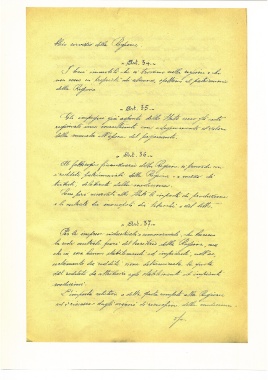 altro carattere della Regione
- Art. 34 -
I beni immobili che si trovano nella regione e che
non sono in proprietà di alcuno, spettano al patrimonio
della Regione.
- Art. 35 -
Gli impegni già assunti dallo Stato verso gli enti
regionali sono mantenuti con adeguamento al valore
della moneta all'epoca del pagamento.
- Art. 36 -
Al fabbisogno finanziario della Regione si provvede con
i redditi patrimoniali della Regione e a mezzo di
tributi, deliberati dalla medesima.
Sono però riservate allo Stato le imposte di produzione
e le entrate dei monopoli dei tabacchi e del lotto.
- Art. 37 -
Per le imprese industriali e commerciali, che hanno
la sede centrale fuori del territorio della Regione, ma
che in essa hanno stabilimenti ed impianti, nell'ac-
certamento dei redditi viene determinata la quota
del reddito da attribuire agli stabilimenti ed impianti
medesimi.
L'imposta relativa a detta quota compete alla Regione
ed è riscossa dagli organi di riscossione della medesima.